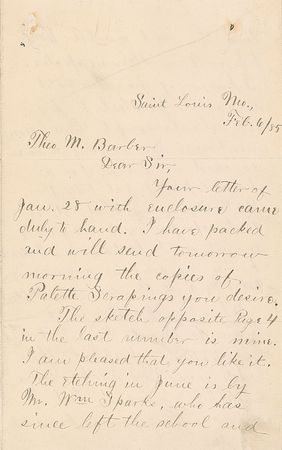 Saint Louis Mo.,
Feb. 6/85
Theo. M. Barber
Dear Sir,
Your letter of
Jan. 28 with enclosure came
duly to hand. I have packed
and will send tomorrow
morning the copies of
Palette Scrapings you desire.
The sketch opposite Page 4
in the last number is mine.
I am pleased that you like it.
The Etching in June is by
Mr. Wm Sparks, who has
since left the school and